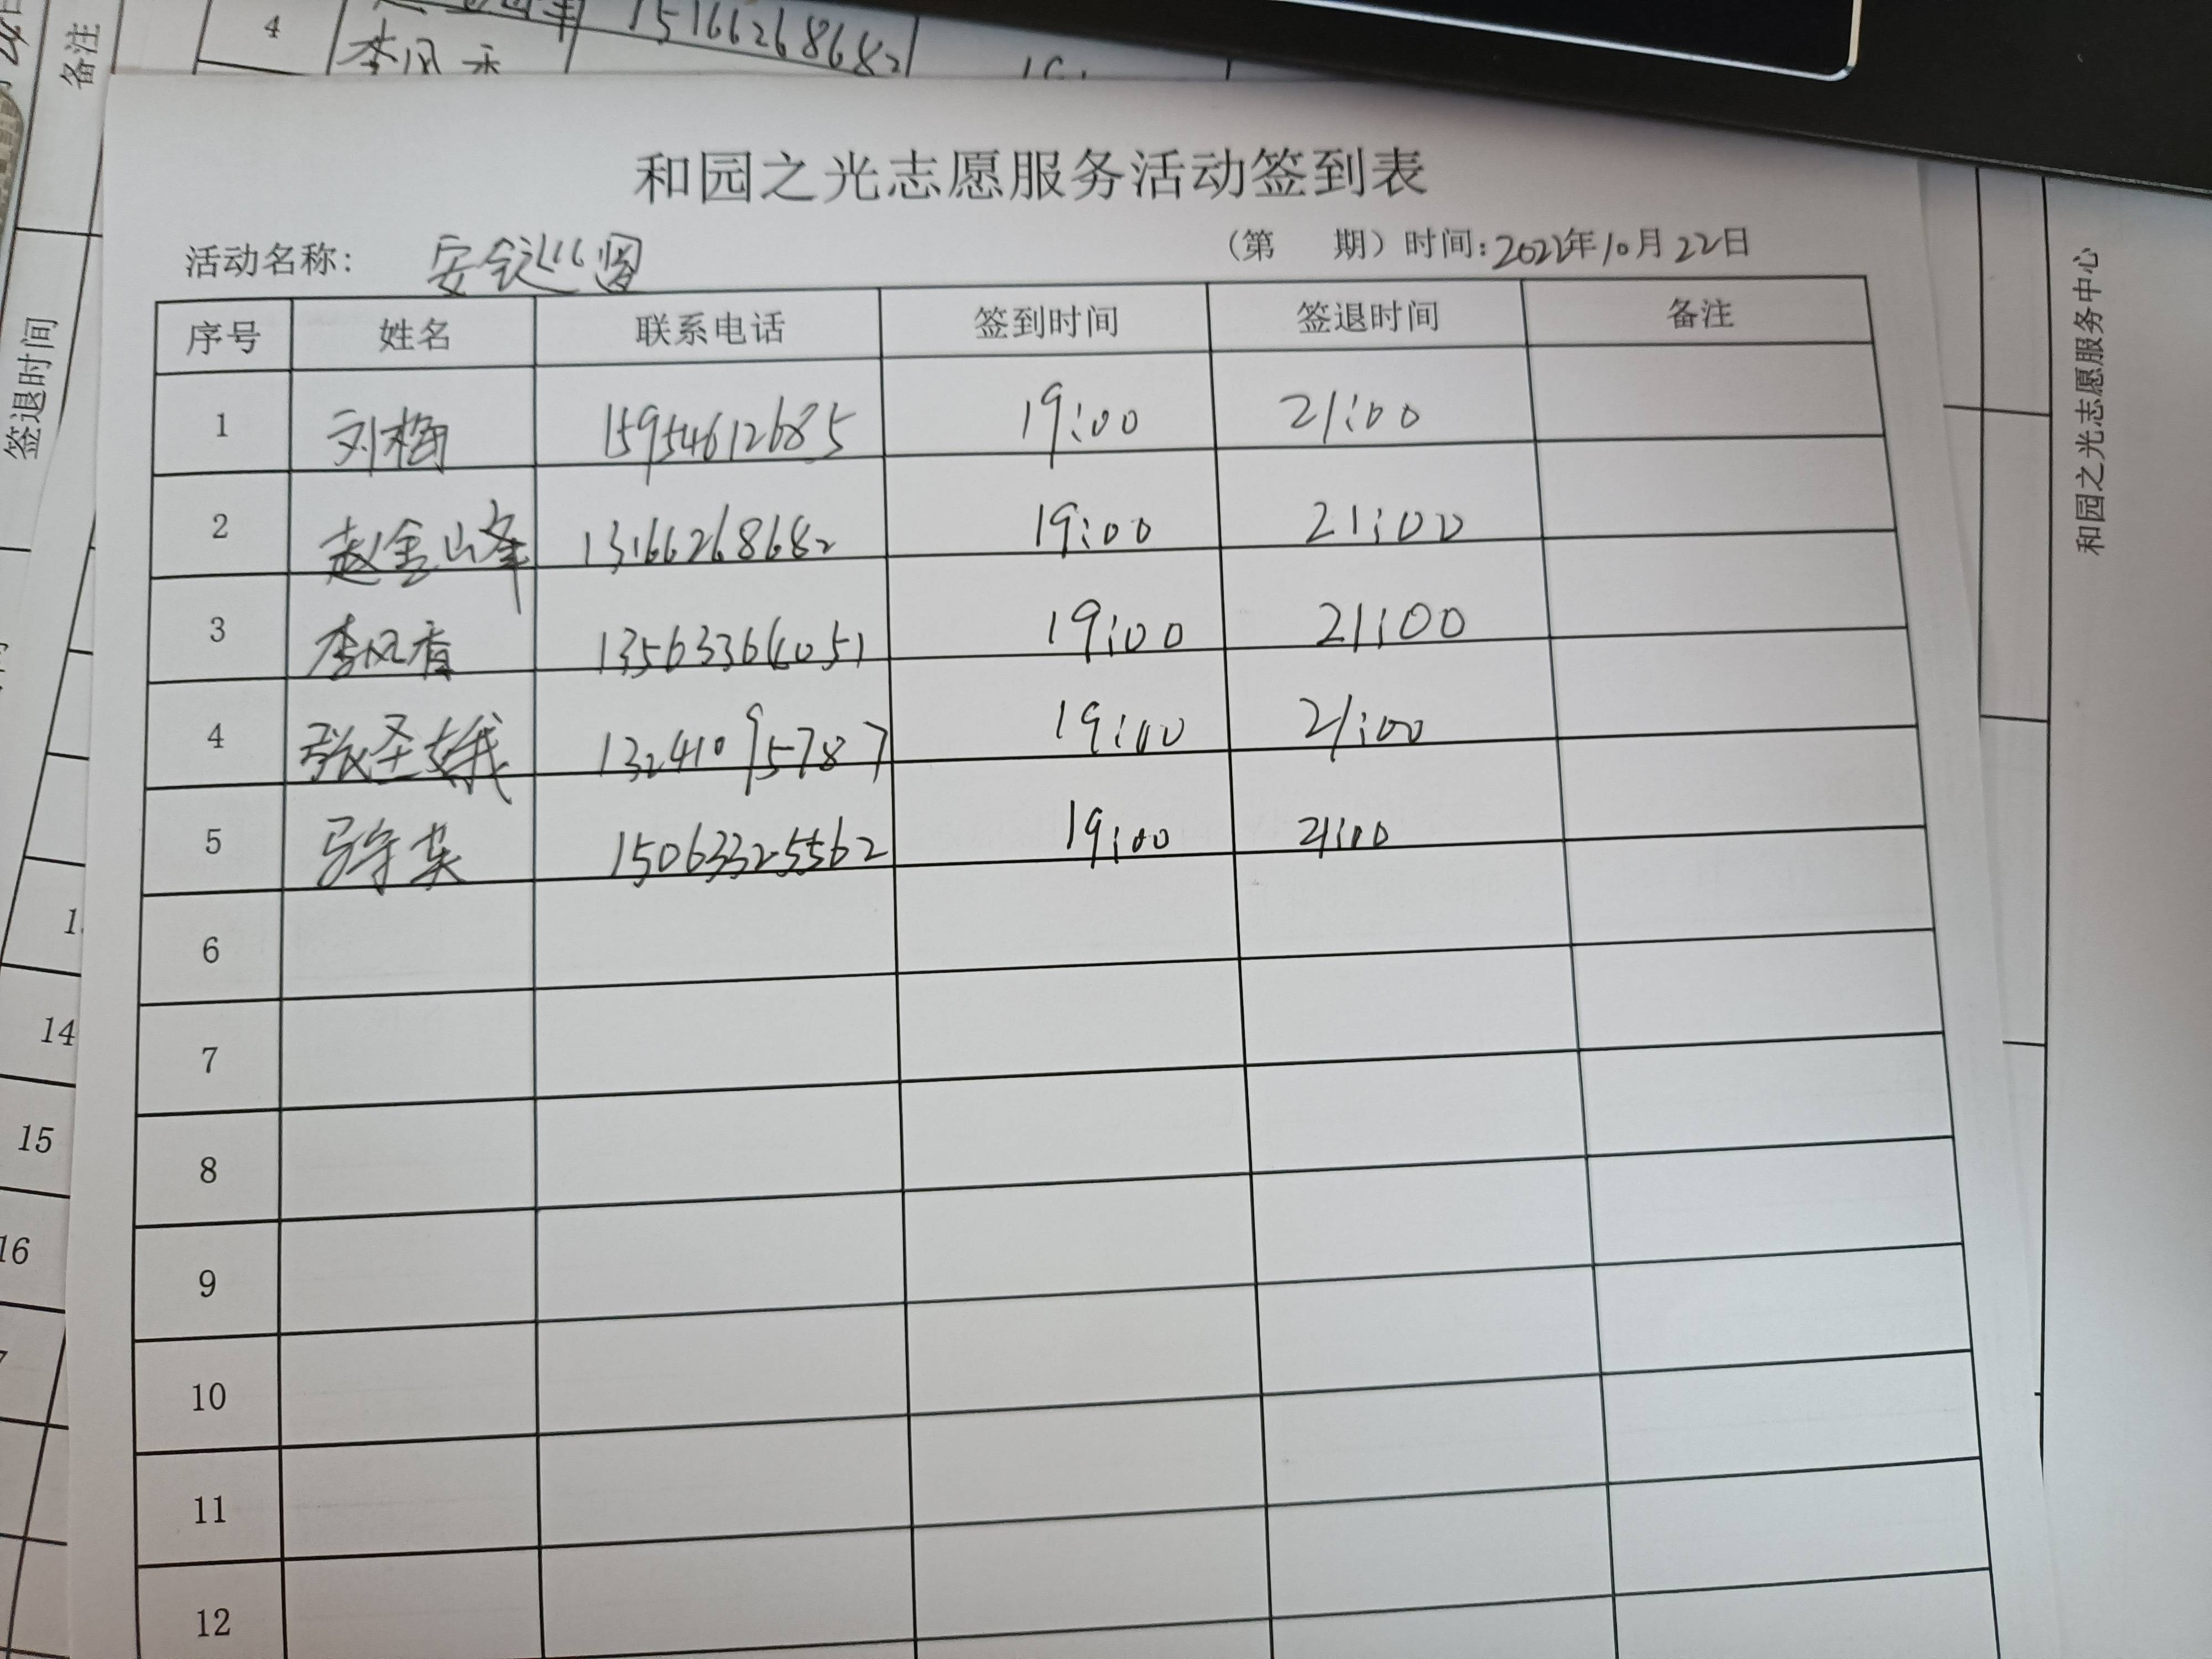 4
15166268682
李风香
备注
签退时间
和园之光志愿服务活动签到表
活动名称: 安全巡逻 (第 期) 时间:2022年10月22日
序号 姓名 联系电话 签到时间 签退时间 备注
1 刘梅 15954612685 19:00 21:00
2 赵金峰 13166268682 19:00 21:00
3 李风香 13563366051 19:00 21:00
4 张圣娥 13241095787 19:00 21:00
5 马守英 15063325562 19:00 21:00
6
7
8
9
10
11
12
14
15
16
和园之光志愿服务中心